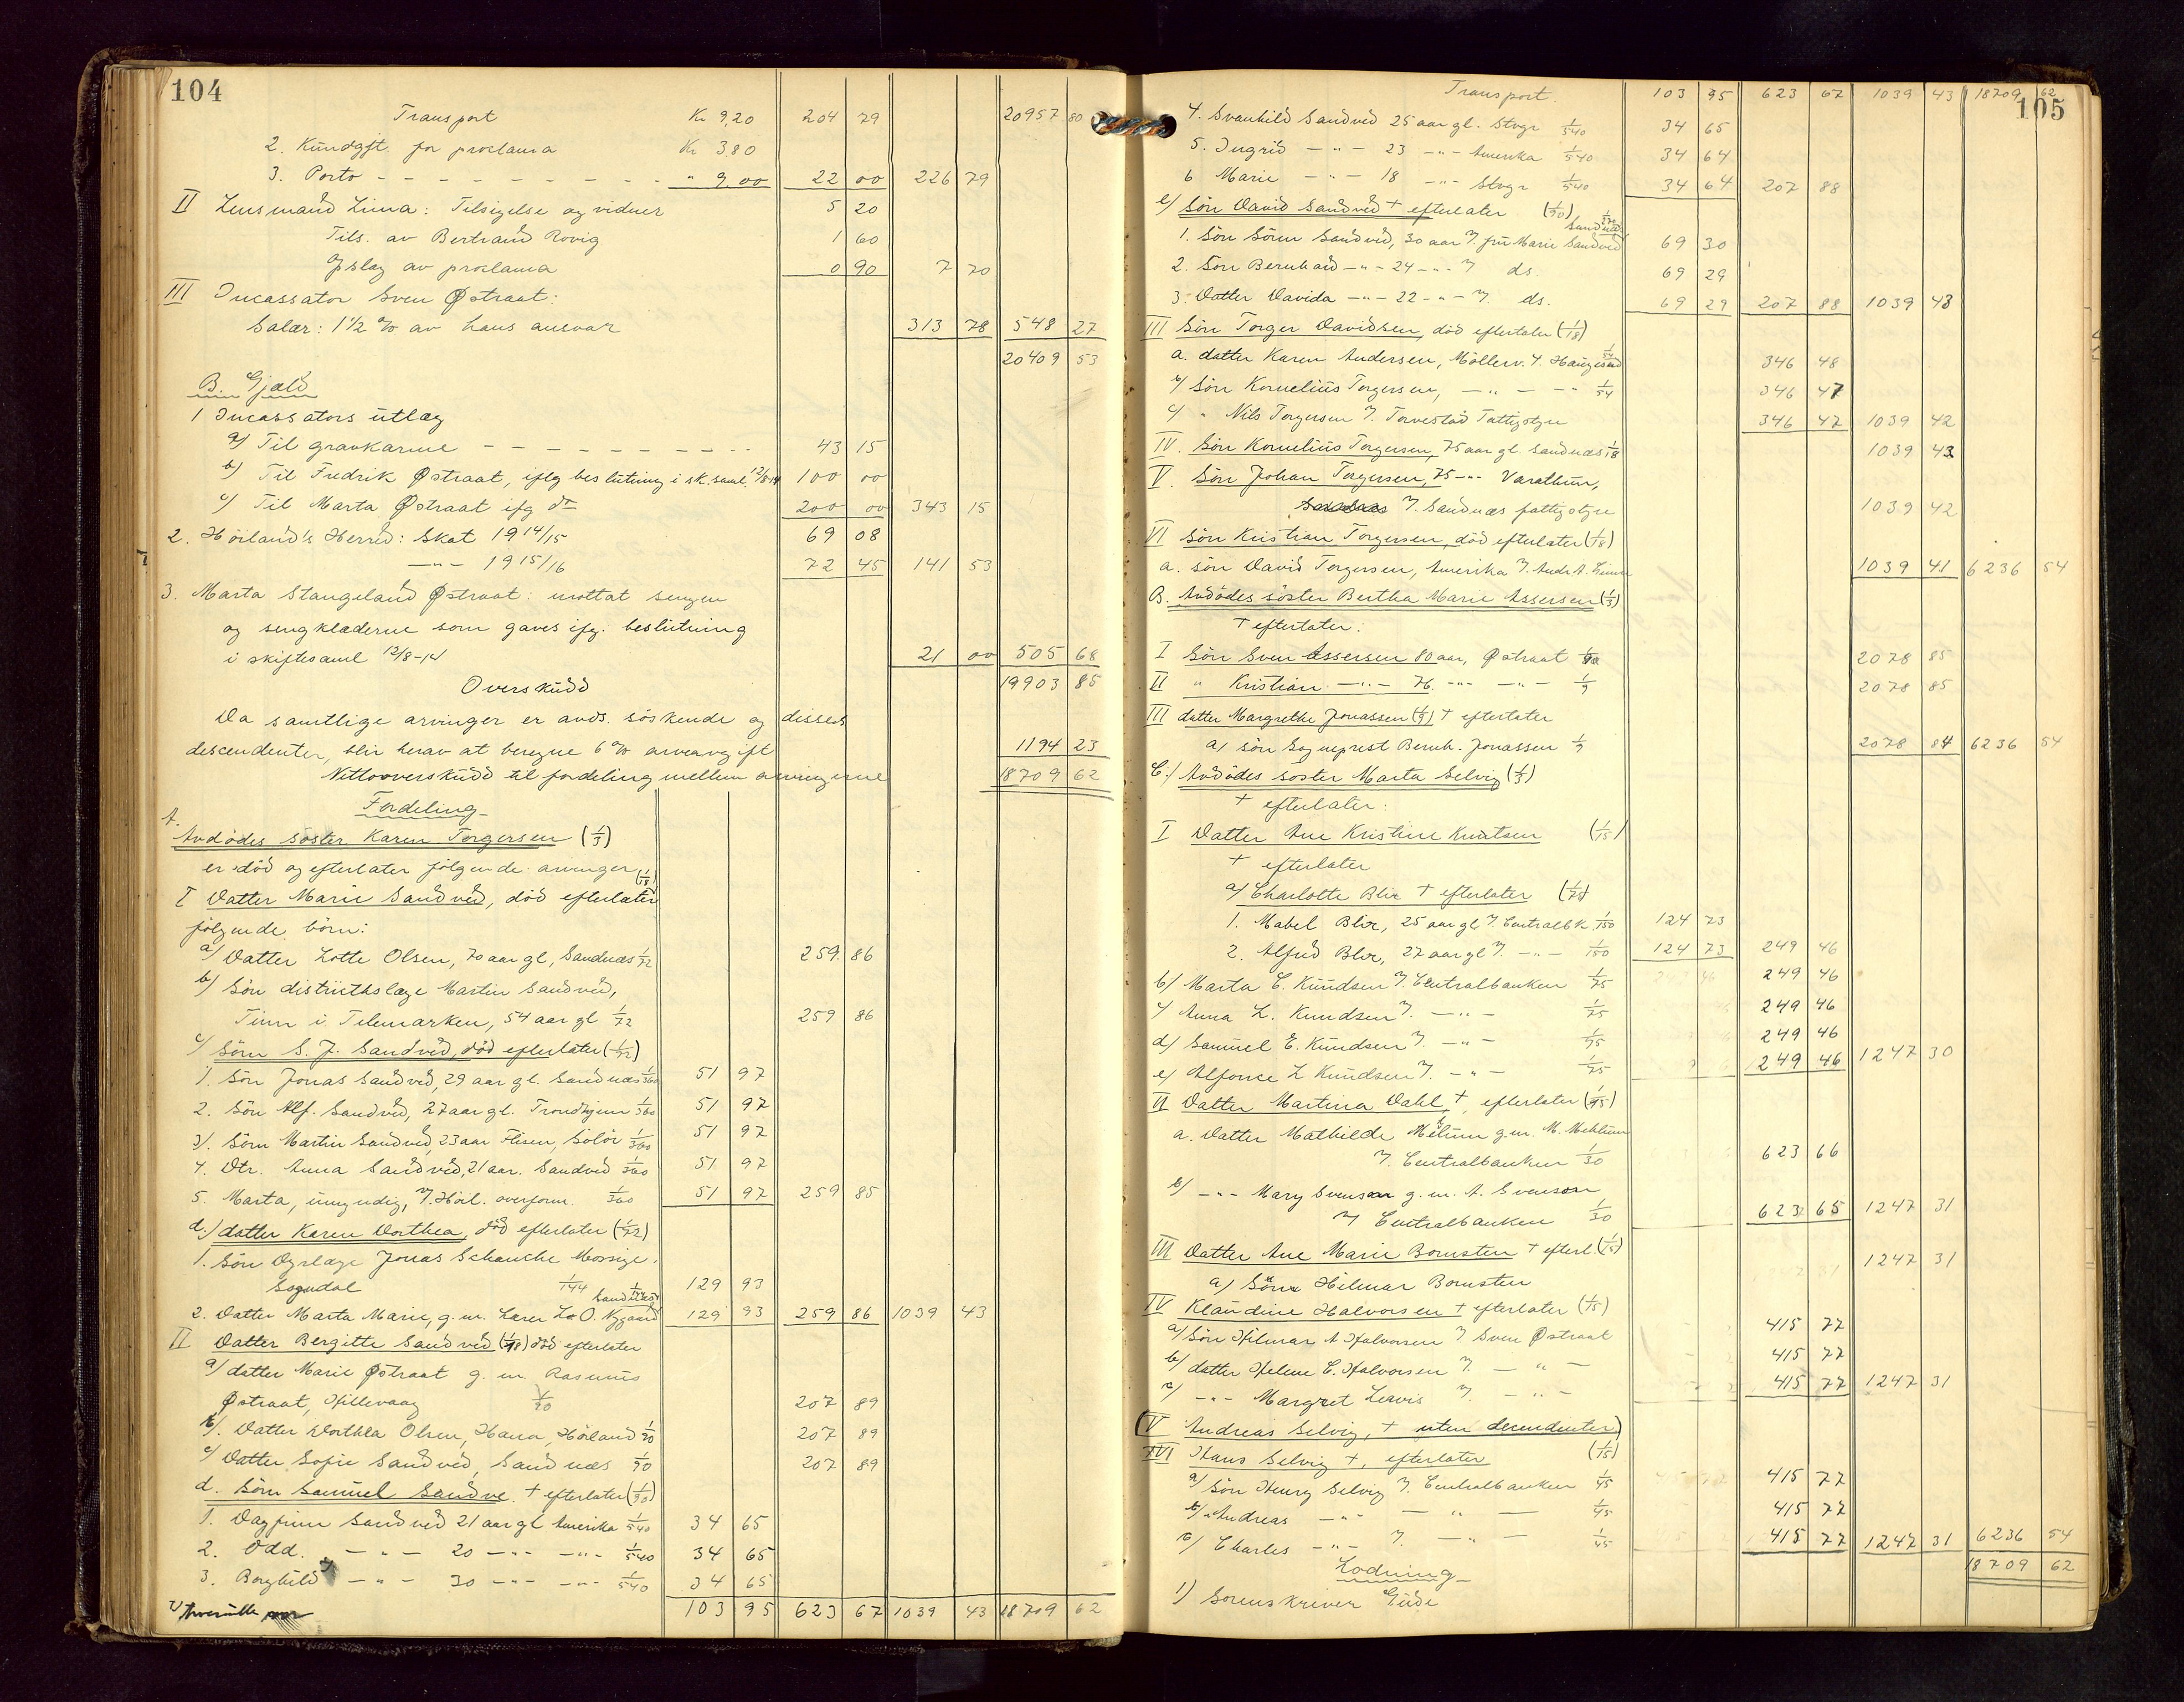 104
Transport Kr 9,20 204 79 20957 80
2. Kundgjt. for proclama Kr 3 80
3. Porto - - - - - - - - - " 9 00 22 00 226 79
II Lensmand Lima: Tilsigelse og vidner 5 20
Tils. av Bertrand Rovig 1 60
Opslag av proclama 0 90 7 70
III Incassator Sven Østraat:
Salær: 1 1/2 % av hans ansvar 313 78 548 27
20409 53
B. Gjæld
1 Incassators utlæg
a/ Til gravkarme - - - - - - - - - 43 15
b/ Til Fredrik Østraat, iflg beslutning i sk. saml. 12/8-14 100 00
c/ Til Marta Østraat ifg do 200 00 343 15
2. Höiland's Herred: Skat 1914/15 69 08
-"- 1915/16 72 45 141 53
3. Marta Stangeland Østraat: mottat sengen
og sengklæderne som gaves ifg. beslutning
i skiftesaml 12/8-14 21 00 505 68
Overskudd 19903 85
Da samtlige arvinger er avds. söskende og disses
descendenter, blir herav at beregne 6 % arveavgift 1194 23
Nettooverskudd til fordeling mellem arvingerne 18709 62
Fordeling
A.
Avdödes söster Karen Torgersen (1/3)
er död og efterlater fölgende arvinger (1/18)
I Datter Marie Sandved, död efterlater
fölgende börn:
a/ Datter Lotte Olsen, 70 aar gl, Sandnæs 1/72 259 86
b/ Sön distriktslæge Martin Sandved,
Tinn i Telemarken, 54 aar gl 1/72 259 86
c/ Sönn S. J. Sandved, död efterlater (1/72)
1. Sön Jonas Sandved, 29 aar gl. Sandnæs 1/360 51 97
2. Sön Alf. Sandved, 27 aar gl. Trondhjem 1/360 51 97
3/. Sönn Martin Sandved, 23 aar Flisen, Solör 1/360 51 97
4. Dtr. Anna Sandved, 21 aar. Sandved 1/360 51 97
5. Marta, umyndig, ɔ. Höil. overform. 1/360 51 97 259 85
d./ datter Karen Dorthea, död efterlater (1/72)
1. Sön Dyrlæge Jonas Schanche Mossige.
Sogndal 1/144 129 93
Sandnæs 1/144
2. Datter Marta Marie, g. m. Lærer L. O. Nygaard 129 93 259 86 1039 43
II Datter Bergitte Sandved (1/18) död efterlater
a/ datter Marie Østraat g. m. Rasmus
Østraat, Hillevaag 1/90 207 89
b/. Datter Dorthea Olsen, Hana, Höiland 1/90 207 89
c/ Datter Sofie Sandved, Sandnæs 1/90 207 89
d. Sönn Samuel Sandve. + efterlater (1/90)
1. Dagfinn Sandved 21 aar gl Amerika 1/540 34 65
2. Odd. -"- 20 -"- -"- 1/540 34 65
3. Borghild -"- 30 -"- -"- 1/540 34 65
103 95 623 67 1039 43 18709 62
105
Transport. 103 95 623 67 1039 43 18709 62
4. Svanhild Sandved 25 aar gl. Stvgr 1/540 34 65
5. Ingrid -"- 23 -"- Amerika 1/540 34 64
6 Marie -"- 18 -"- Stvgr 1/540 34 64 207 88
e/ Sön David Sandved + efterlater (1/90)
Sandnæs
1. Sön Sören Sandved, 30 aar ɔ. fru Marie Sandved 69 30
2. Sön Bernhard -"- 24 -"- ɔ ds. 69 29
3. Datter Davida -"- 22 -"- ɔ. ds. 69 29 207 88 1039 43
III Sön Torger Davidsen, död efterlater (1/18)
a. datter Karen Andersen, Möllerv. 4. Haugesund 1/54 346 48
b/ Sön Kornelius Torgersen, -"- -"- 1/54 346 47
c/ " Nils Torgersen ɔ. Torvestad Fattigstyre 346 47 1039 42
IV. Sön Kornelius Torgersen, 75 aar gl. Sandnæs 1/18 1039 43
V. Sön Johan Torgersen, 75 -"- Varathun,
Sandnæs ɔ. Sandnæs fattigstyre 1039 42
VI Sön Kristian Torgersen, död efterlater (1/18)
a. sön David Torgersen, Amerika ɔ. Andr. A. Lima 1039 41 6236 54
B. Avdödes söster Bertha Marie Assersen (1/3)
+ efterlater:
I Sön Sven Assersen 80 aar, Østraat 1/9 2078 85
II " Kristian -"- 76. -"- -"- 1/9 2078 85
III datter Margrethe Jonassen (1/9) + efterlater
a/ sön Sogneprest Bernh. Jonassen 1/9 2078 84 6236 54
C./ Avdödes söster Marta Selvig (1/3)
+ efterlater:
I Datter Ane Kristine Knutsen (1/15)
+ efterlater
a/ Charlotte Blix + efterlater (1/75)
1. Mabel Blix, 25 aar gl ɔ. Centralbk. 1/150 124 73
2. Alfred Blix, 27 aar gl ɔ. -"- 1/150 124 73 249 46
b/ Marta C. Knudsen ɔ. Centralbanken 1/75 249 46
c/ Anna L. Knudsen ɔ. -"- 1/75 249 46
d/ Samuel E. Knudsen ɔ. -"- 1/75 249 46
e/ Alfonce L Knudsen ɔ. -"- 1/75 249 46 1247 30
II Datter Martina Dahl, +, efterlater (1/15)
a. Datter Mathilde Mehlum g. m. M. Mehlum
ɔ. Centralbanken 1/30 623 66
b/ -"- Mary Svenson g. m. A. Svenson,
ɔ/ Centralbanken 1/30 623 65 1247 31
III Datter Ane Marie Bornsten + efterl. (1/15) 1247 31
a/ Sönn Hilmar Bornsten
IV Klaudine Halvorsen + efterlater (1/15)
a/ Sön Hilmar A Halvorsen ɔ. Sven Østraat 415 77
b/ datter Helene C. Halvorsen ɔ. -"- 415 77
c/ -"- Margret Lewis ɔ. -"- 415 77 1247 31
(V Andreas Selvig, + uten decendenter)
VI Hans Selvig +, efterlater (1/15)
a/ Sön Henry Selvig ɔ. Centralbanken 1/45 415 77
b/ " Andreas -"- -"- 1/45 415 77
c/ Charles -"- ɔ. -"- 1/45 415 77 1247 31 6236 54
Lodning 18709 62
1) Sorenskriver Gude